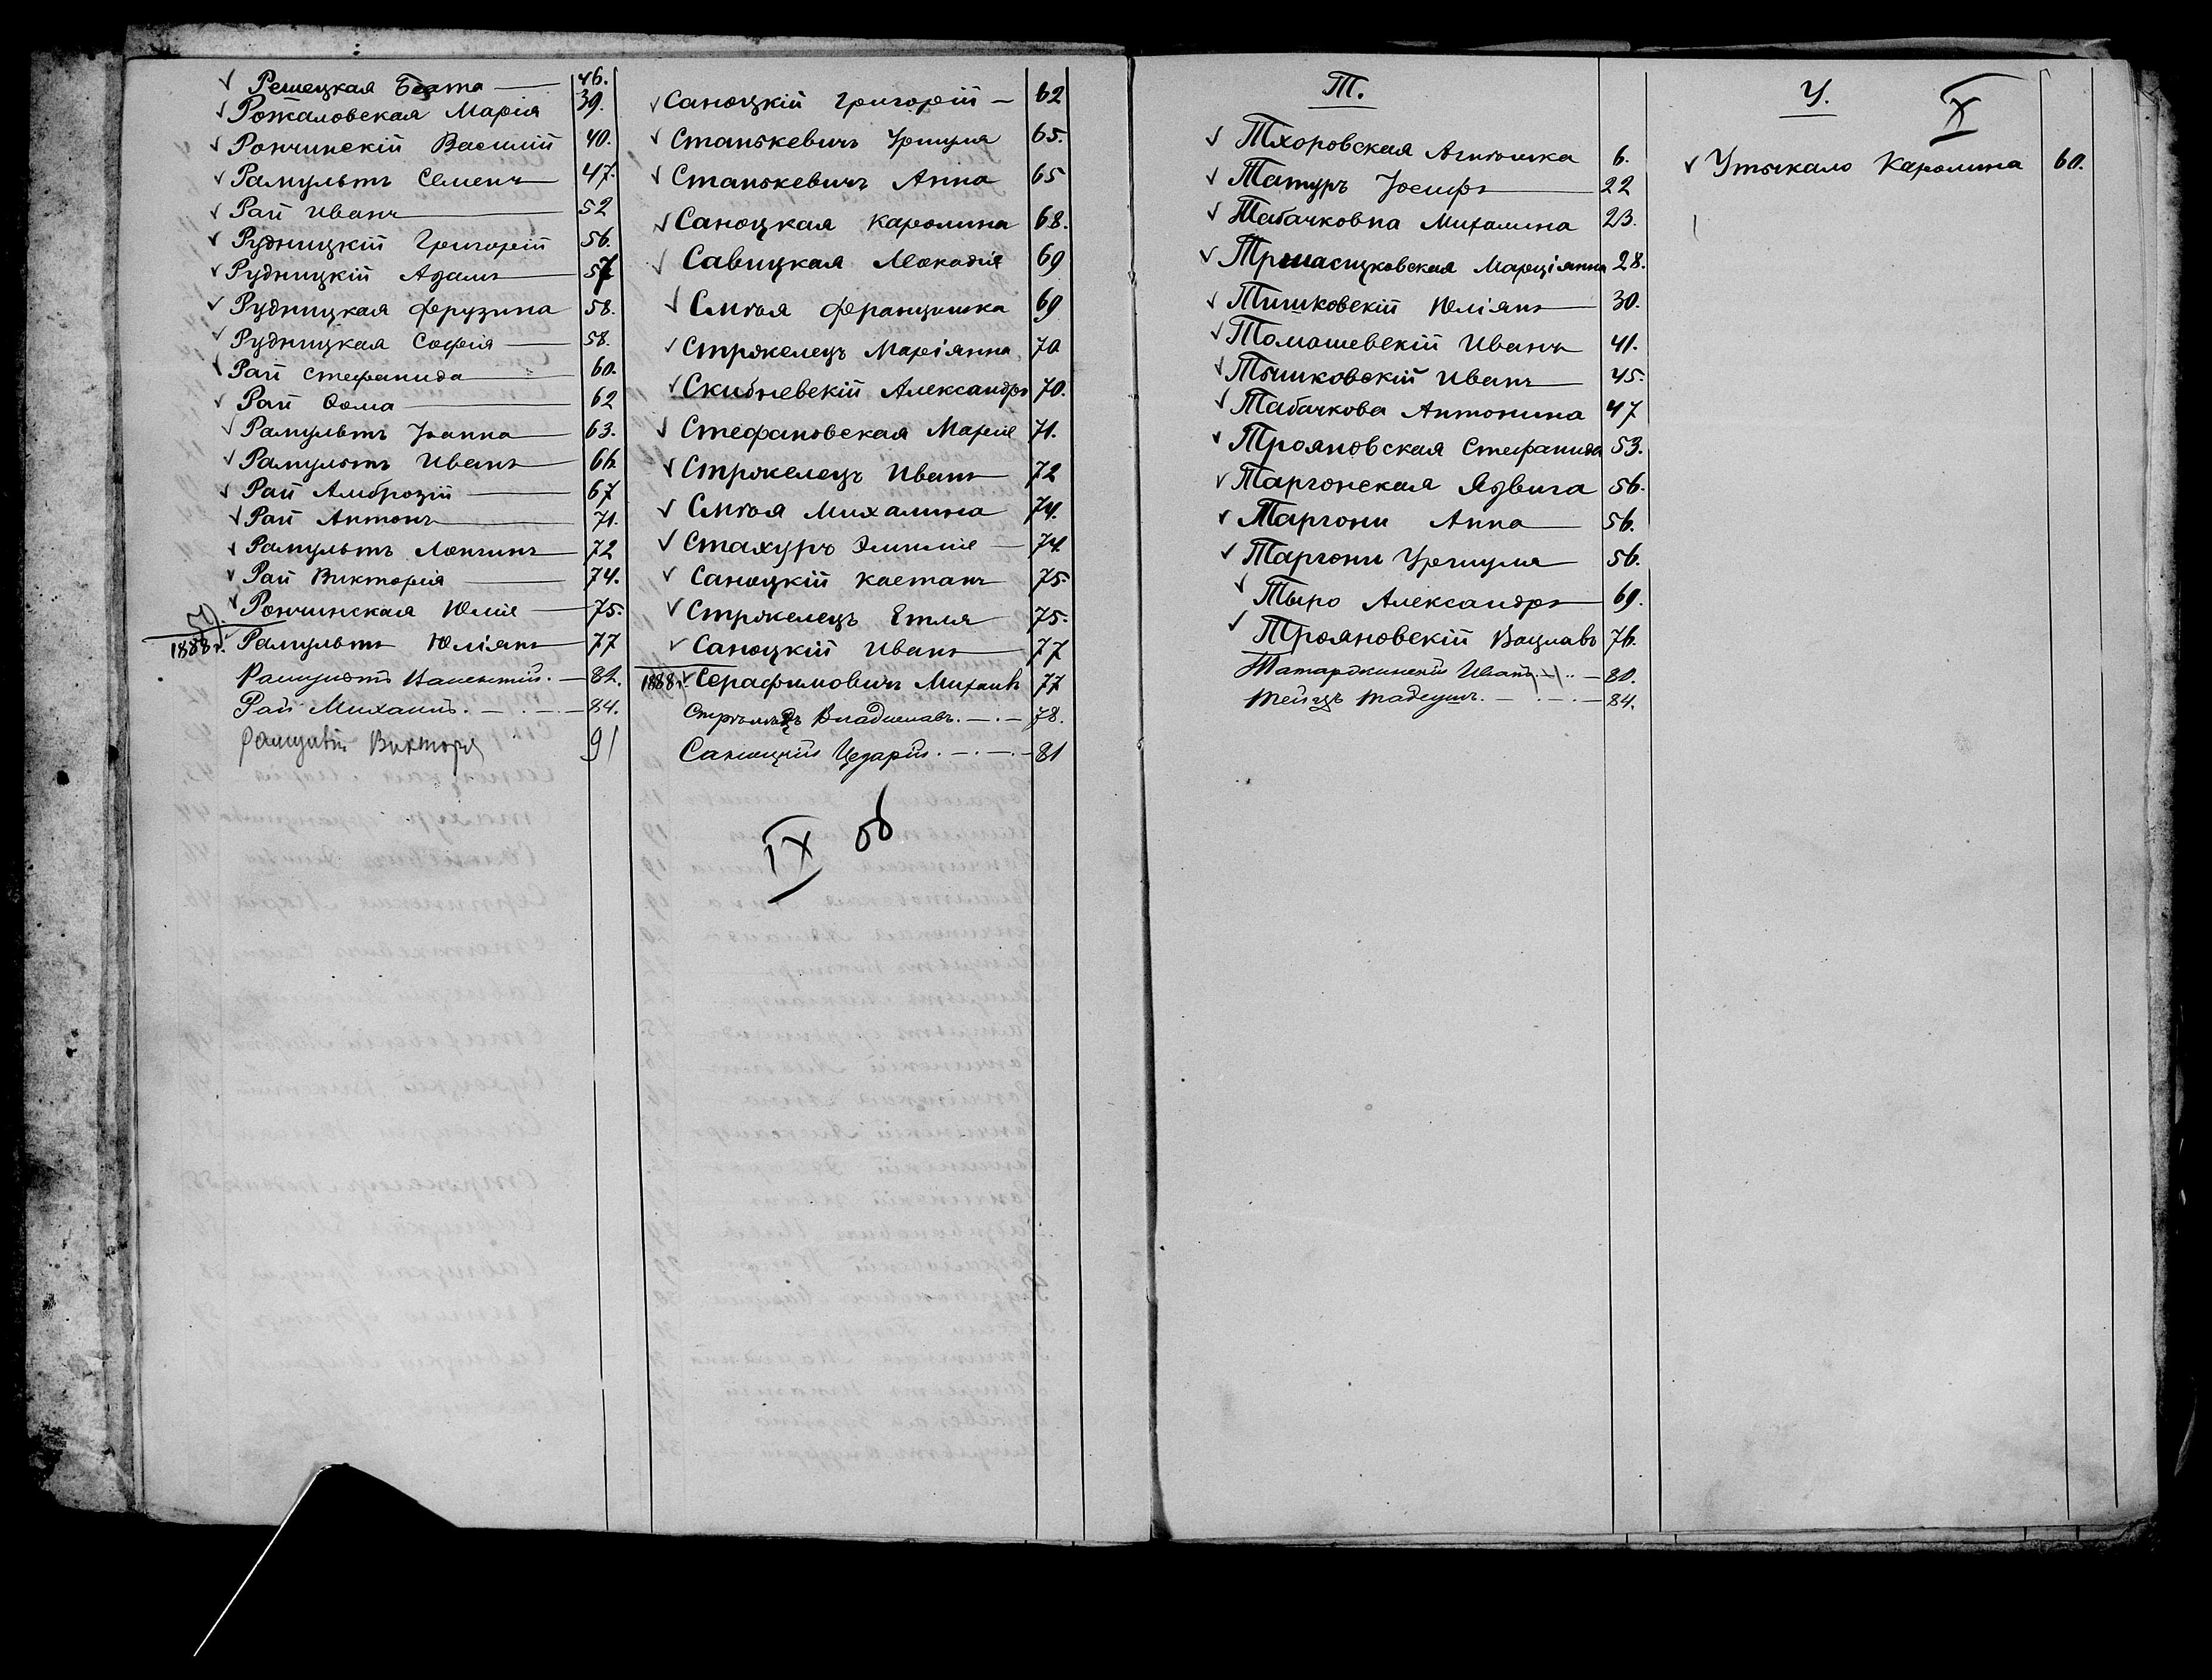 Решецкая Беата — 46.
Рожаловская Марія 39.
Рончинскій Василій 40.
Рамультъ Семенъ — 47.
Рай Иванъ — 52
Рудницкій Григорій 56.
Рудницкій Адамъ — 57
Рудницкая Ферузина 58.
Рудницкая Софія — 58.
Рай Стефанида — 60.
Рай Ѳома — 62
Рамультъ Іоанна — 63.
Рамультъ Иванъ — 66.
Рай Амброзій — 67
Рай Антонъ — 71.
Рамультъ Лонгинъ — 72
Рай Викторія — 74.
Рончинская Юлія — 75.
1888 г. Рамультъ Юліянъ — 77
Рамультъ Валентій. — 82.
Рай Михаилъ. — 84.
Рамультъ Викторъ 91
Саноцкій Григорій — 62
Станькевичъ Уршуля 65.
Станькевичъ Анна 65
Саноцкая Каролина 68.
Савицкая Леокадія 69
Смѣтая Францишка 69
Стржелецъ Маріянна 70
Скибневскій Александръ 70.
Стефановская Марія 71.
Стржелецъ Иванъ — 72
Михалина 74.
Стахуръ Эмилія — 74.
Саноцкій Каетанъ 75.
Стржелецъ 75.
Саноцкій Иванъ — 77
1888 г. Серафимовичъ Михаилъ 77
Владиславъ. — 78.
Саноцкій Цезарій. — 81
IX об
Т.
Тхоровская Агнѣшка 6.
Татуръ Іосифъ — 22
Табачковна Михалина 23.
Марціянна 28.
Тишковскій Юліянъ — 30.
Томашевскій Иванъ 41.
Тышковскій Иванъ — 45.
Табачкова Антонина 47
Трояновская Стефанида 53.
Таргонская Ядвига 56.
Таргони Анна — 56.
Таргони Уршуля — 56.
Тыро Александръ — 69.
Трояновскій Вацлавъ 76.
Иванъ — 80.
Тадеушъ. — 84.
У.
X
Утыкало Каролина 60.